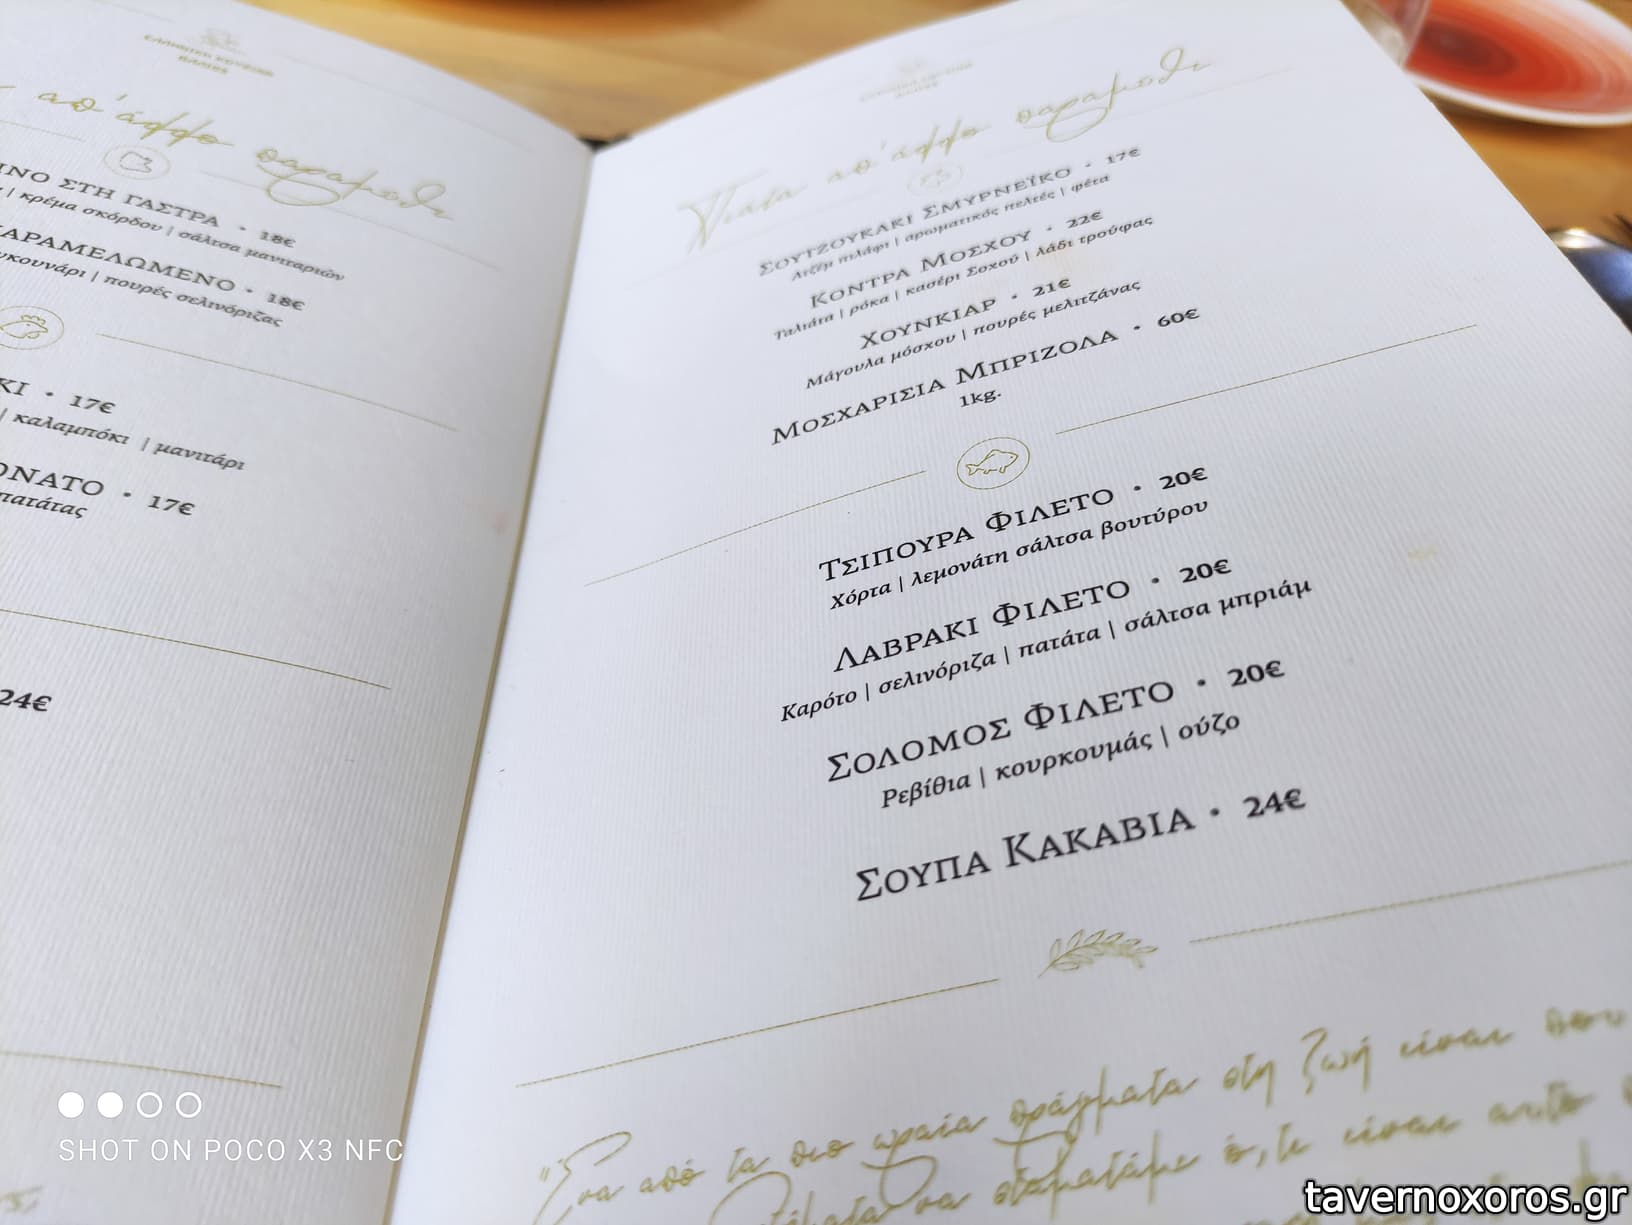 ΕΛΛΗΝΙΚΗ ΚΟΥΖΙΝΑ
απ' άλλο παραμύθι
ΙΝΟ ΣΤΗ ΓΑΣΤΡΑ • 18€
| κρέμα σκόρδου | σάλτσα μανιταριών
ΑΡΑΜΕΛΩΜΕΝΟ • 18€
υκουνάρι | πουρές σελινόριζας
ΚΙ • 17€
| καλαμπόκι | μανιτάρι
ΟΝΑΤΟ • 17€
πατάτας
24€
Πιάτα απ' άλλο παραμύθι
ΣΟΥΤΖΟΥΚΑΚΙ ΣΜΥΡΝΕΪΚΟ • 17€
Ατζέμ πιλάφι | αρωματικός πελτές | φέτα
ΚΟΝΤΡΑ ΜΟΣΧΟΥ • 22€
Ταλιάτα | ρόκα | κασέρι Σοχού | λάδι τρούφας
ΧΟΥΝΚΙΑΡ • 21€
Μάγουλα μόσχου | πουρές μελιτζάνας
ΜΟΣΧΑΡΙΣΙΑ ΜΠΡΙΖΟΛΑ • 60€
1kg.
ΤΣΙΠΟΥΡΑ ΦΙΛΕΤΟ • 20€
Χόρτα | λεμονάτη σάλτσα βουτύρου
ΛΑΒΡΑΚΙ ΦΙΛΕΤΟ • 20€
Καρότο | σελινόριζα | πατάτα | σάλτσα μπριάμ
ΣΟΛΟΜΟΣ ΦΙΛΕΤΟ • 20€
Ρεβίθια | κουρκουμάς | ούζο
ΣΟΥΠΑ ΚΑΚΑΒΙΑ • 24€
"Ένα από τα πιο ωραία πράγματα στη ζωή είναι που
να σταματάμε ό,τι είναι αυτό
SHOT ON POCO X3 NFC
tavernoxoros.gr